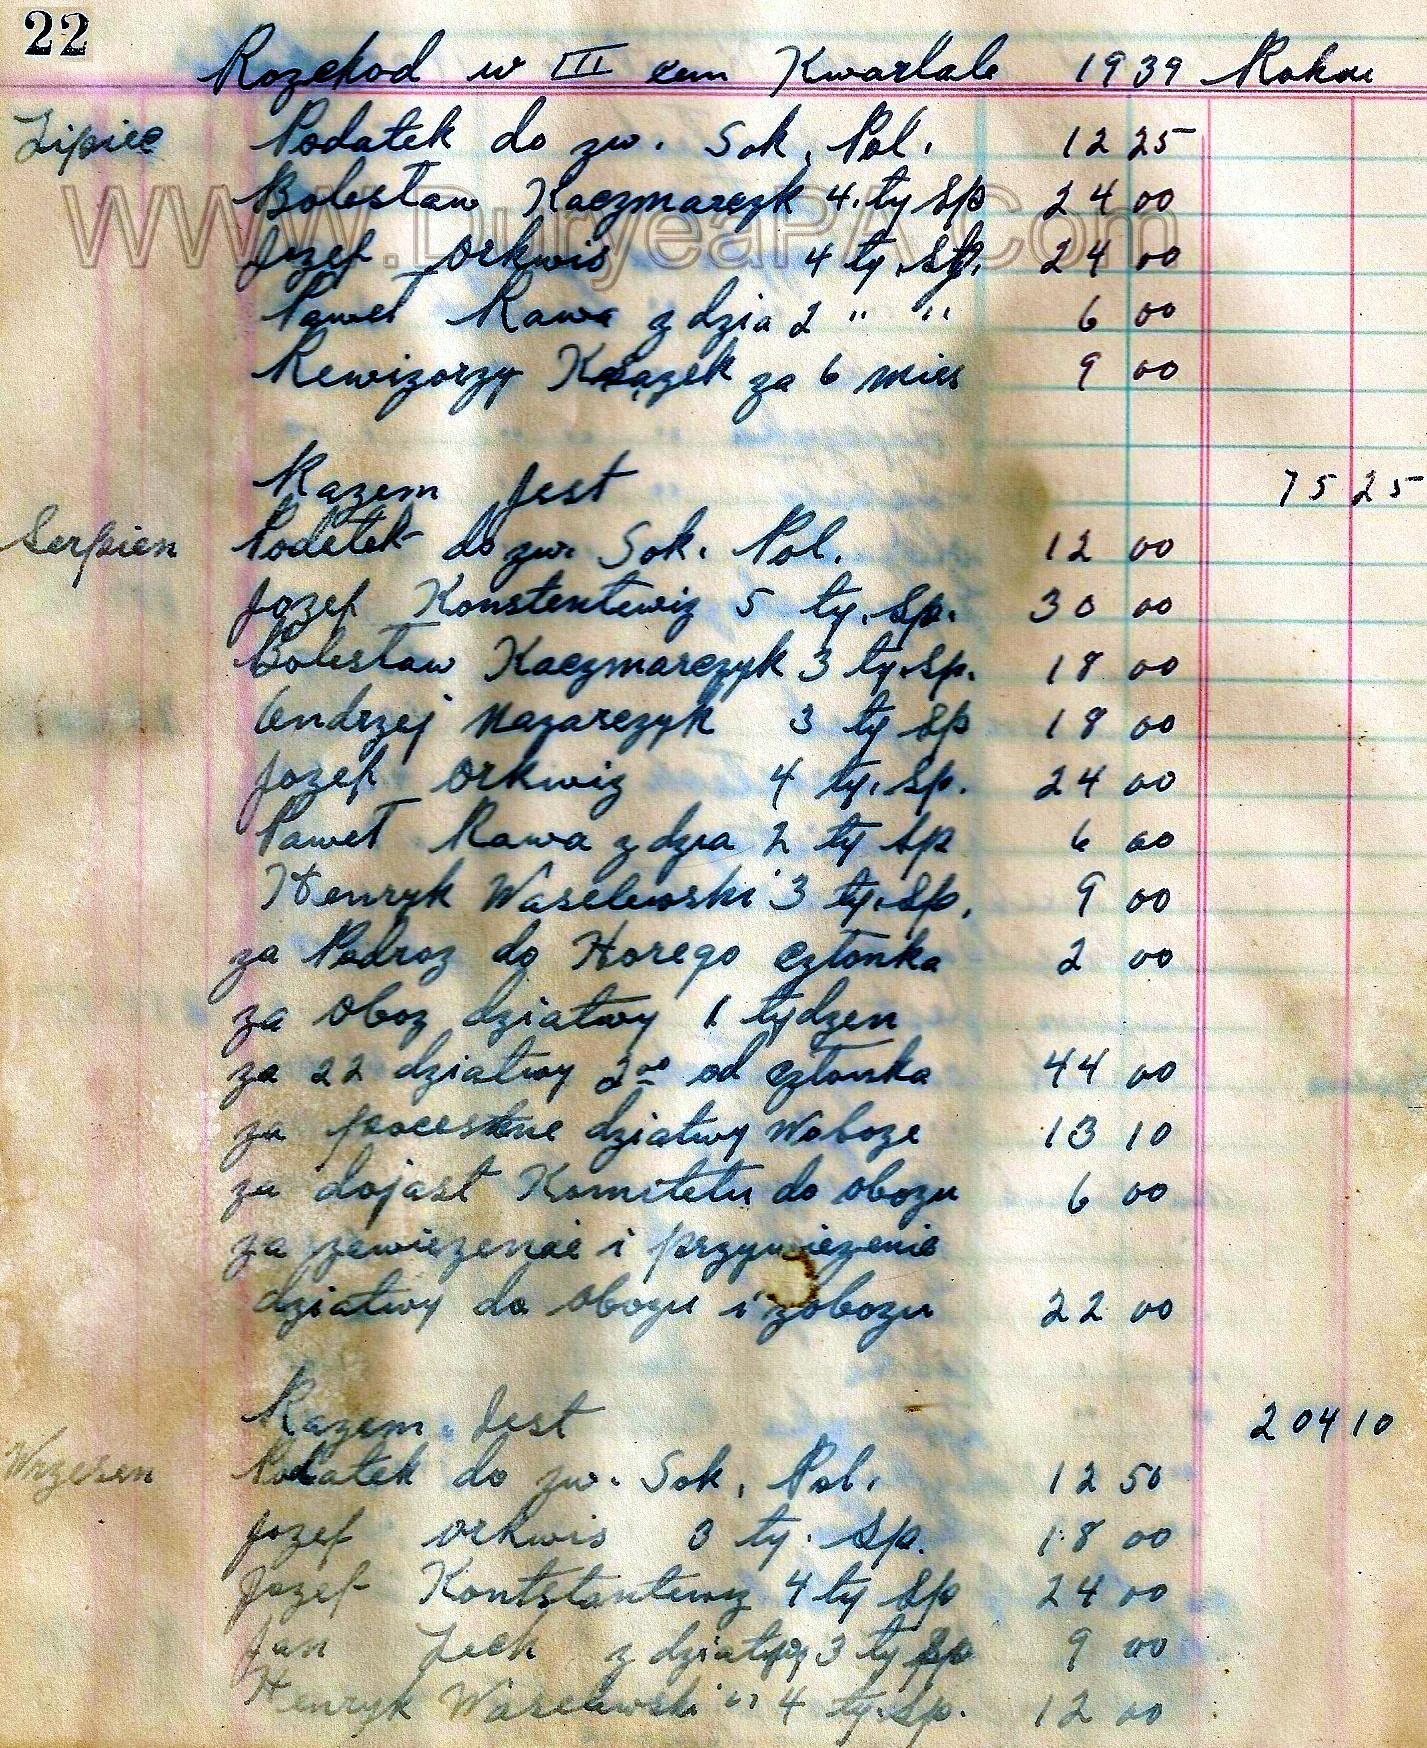 22
Rozchod w III cim Kwartale 1939 Roku
Lipiec Podatek do zw. Sok. Pol. 12 25
Bolestaw Kaczmarczyk 4. ty Sp 24 00
WWW.DuryeaPA.Com
Jozef Orkwis 4 ty. Sp. 24 00
Paweł Rawa z dzia 2 " " 6 00
Rewizorzy Ksążek za 6 mies 9 00
Razem Jest 75 25
Serpien Podetek do zw. Sok. Pol. 12 00
Jozef Konstentewiz 5 ty. Sp. 30 00
Bolestaw Kaczmarczyk 3 ty. Sp. 18 00
Andrzej Mazarczyk 3 ty Sp 18 00
Jozef Orkwiz 4 ty. Sp. 24 00
Paweł Rawa z dzia 2 ty Sp 6 00
Henryk Waselewski 3 ty. Sp. 9 00
za Podroz do Horego Cztonka 2 00
za Oboz dziatwy 1 tydzen
za 22 dziatwy 2 00 od Cztonka 44 00
za dziatwy Woboze 13 10
za dojast Komitetu do obozu 6 00
za zawiezenie i przywiezenie
dziatwy do obozu i zobozu 22 00
Razem Jest 204 10
Wrzesen Podatek do zw. Sok. Pol. 12 50
Jozef Orkwis 3 ty. Sp. 18 00
Jozef Kontstantewiz 4 ty Sp 24 00
Jan Zech z dziatwy 3 ty Sp 9 00
Henryk Waselewski " 4 ty. Sp. 12 00